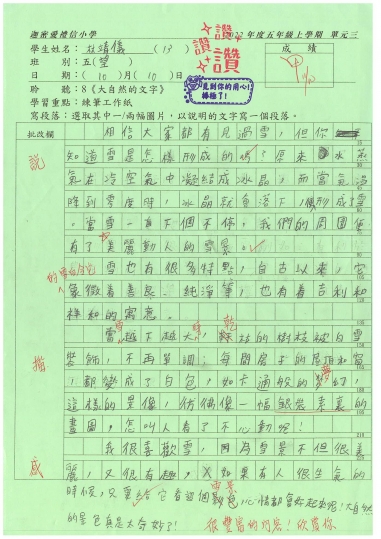 迦密愛禮信小學
2022年度五年級上學期 單元三
學生姓名：杜靖儀 (13)
成績
班 別：五(望)
甲
讚讚讚
日 期：(10)月(10)日
見到你的用心！
棒極了！
聆 聽：8《大自然的文字》
學習重點：練筆工作紙
寫段落：選取其中一/兩幅圖片，以說明的文字寫一個段落。
批改欄
相信大家都有見過雪，但你
知道雪是怎樣形成的嗎？原來，水蒸
說
氣在冷空氣中凝結成冰晶，而當氣溫
降到零度時，冰晶就會落下，形成了雪
，當雪一直下個不停，我們的周圍便
有了美麗動人的雪景。
雪也有很多特點，自古以來，它
象徵着善良、純淨等，也有着吉利和
祥和的寓意。
當雪越下越大，乾枯的樹枝被白雪
裝飾，不再單調；每間房子的屋頂和窗
描
，都變成了白色，如卡通般的夢幻，
這樣的景像，彷彿像一幅銀裝素裹的
畫圖，怎叫人看了不心動呢！
我很喜歡雪，因為雪景不但很美
感
麗，又很有趣，如果有人很生氣的
時候，只要給它看這個雪景心情都會好起來呢！大自然
的景色真是太奇妙了！
很豐富的內容！欣賞你